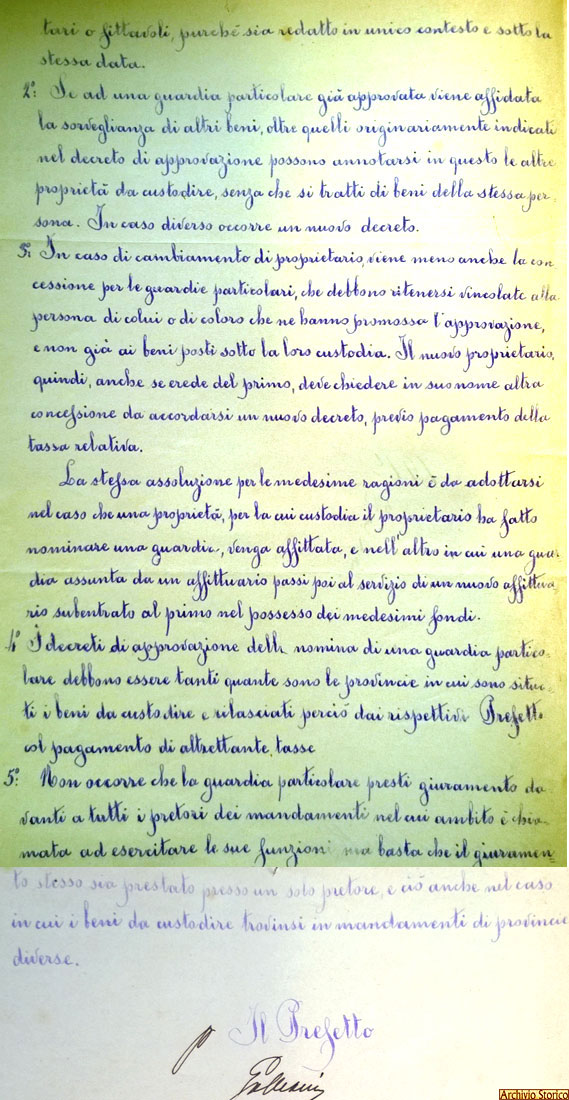 tari o fittavoli, purché sia redatto in unico contesto e sotto la
stessa data.
2º: Se ad una guardia particolare già approvata viene affidata
la sorveglianza di altri beni, oltre quelli originariamente indicati
nel decreto di approvazione possono annotarsi in questo le altre
proprietà da custodire, senza che si tratti di beni della stessa per-
sona. In caso diverso occorre un nuovo decreto.
3: In caso di cambiamento di proprietario, viene meno anche la con
cessione per le guardie particolari, che debbono ritenersi vincolate alla
persona di colui o di coloro che ne hanno promossa l'approvazione,
e non già ai beni posti sotto la loro custodia. Il nuovo proprietario,
quindi, anche se erede del primo, deve chiedere in suo nome altra
concessione da accordarsi un nuovo decreto, previo pagamento della
tassa relativa.
La stessa assoluzione per le medesime ragioni è da adottarsi
nel caso che una proprietà, per la cui custodia il proprietario ha fatto
nominare una guardia, venga affittata, e nell'altro in cui una guar-
dia assunta da un affittuario passi poi al servizio di un nuovo affittua-
rio subentrato al primo nel possesso dei medesimi fondi.
4º I decreti di approvazione della nomina di una guardia partico-
lare debbono essere tanti quante sono le provincie in cui sono situa-
ti i beni da custodire e rilasciati perciò dai rispettivi Prefetti
col pagamento di altrettante tasse
5º: Non occorre che la guardia particolare presti giuramento da
vanti a tutti i pretori dei mandamenti nel cui ambito è chia-
mata ad esercitare le sue funzioni ma basta che il giuramen-
to stesso sia prestato presso un solo pretore, e ciò anche nel caso
in cui i beni da custodire trovinsi in mandamenti di provincie
diverse.
p Il Prefetto
Archivio Storico